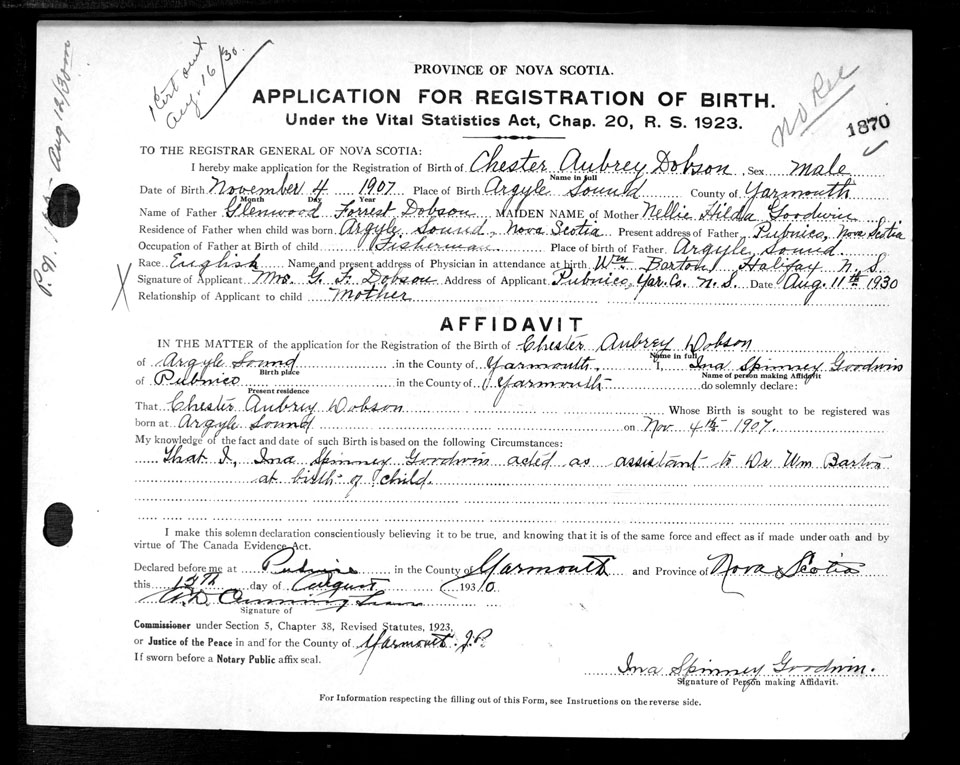 1 Cert sent
Aug. 16/30.
Aug 12/30
No Rec
1870
PROVINCE OF NOVA SCOTIA.
APPLICATION FOR REGISTRATION OF BIRTH.
Under the Vital Statistics Act, Chap. 20, R. S. 1923.
TO THE REGISTRAR GENERAL OF NOVA SCOTIA:
I hereby make application for the Registration of Birth of Chester Aubrey Dobson Sex male
Name in full
Date of Birth November 4 1907 Place of Birth Argyle Sound County of Yarmouth
Month Day Year
Name of Father Glenwood Forrest Dobson MAIDEN NAME of Mother Nellie Hilda Goodwin
Residence of Father when child was born Argyle Sound, Nova Scotia Present address of Father Pubnico, Nova Scotia
Occupation of Father at Birth of child Fisherman Place of birth of Father Argyle Sound.
Race English Name and present address of Physician in attendance at birth Wm Barton, Halifax N. S.
X Signature of Applicant Mrs. G. F. Dobson Address of Applicant Pubnico, Yar. Co. N. S. Date Aug. 11th 1930
Relationship of Applicant to child Mother
AFFIDAVIT
IN THE MATTER of the application for the Registration of the Birth of Chester Aubrey Dobson
Name in full
of Argyle Sound in the County of Yarmouth, I, Ina Spinney Goodwin
Birth place Name of person making Affidavit
of Pubnico in the County of Yarmouth do solemnly declare:
Present residence
That Chester Aubrey Dobson Whose Birth is sought to be registered was
born at Argyle Sound on Nov 4th 1907.
My knowledge of the fact and date of such Birth is based on the following Circumstances:
That I, Ina Spinney Goodwin acted as assistant to Dr Wm Barton
at birth of child.
I make this solemn declaration conscientiously believing it to be true, and knowing that it is of the same force and effect as if made under oath and by
virtue of The Canada Evidence Act.
Declared before me at Pubnico in the County of Yarmouth and Province of Nova Scotia
this 12th day of August 1930
Signature of
Commissioner under Section 5, Chapter 38, Revised Statutes, 1923,
or Justice of the Peace in and for the County of Yarmouth J.P.
If sworn before a Notary Public affix seal.
Ina Spinney Goodwin.
Signature of Person making Affidavit.
For Information respecting the filling out of this Form, see Instructions on the reverse side.